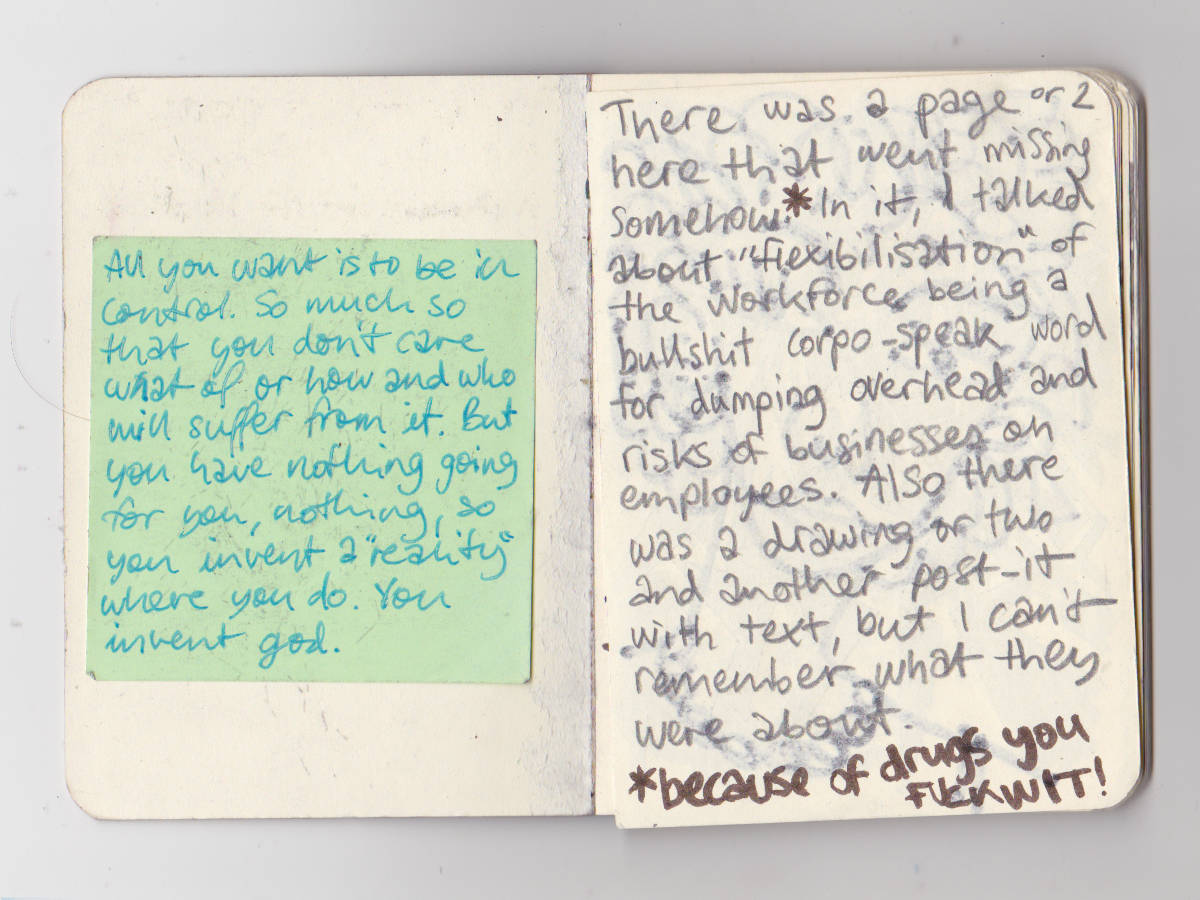 All you want is to be in
control. So much so
that you don't care
what of or how and who
will suffer from it. But
you have nothing going
for you, nothing, so
you invent a "reality"
where you do. You
invent god.
There was a page or 2
here that went missing
somehow.* In it, I talked
about "flexibilisation" of
the workforce being a
bullshit corpo-speak word
for dumping overhead and
risks of businesses on
employees. Also there
was a drawing or two
and another post-it
with text, but I can't
remember what they
were about.
*because of drugs you
FUCKWIT!